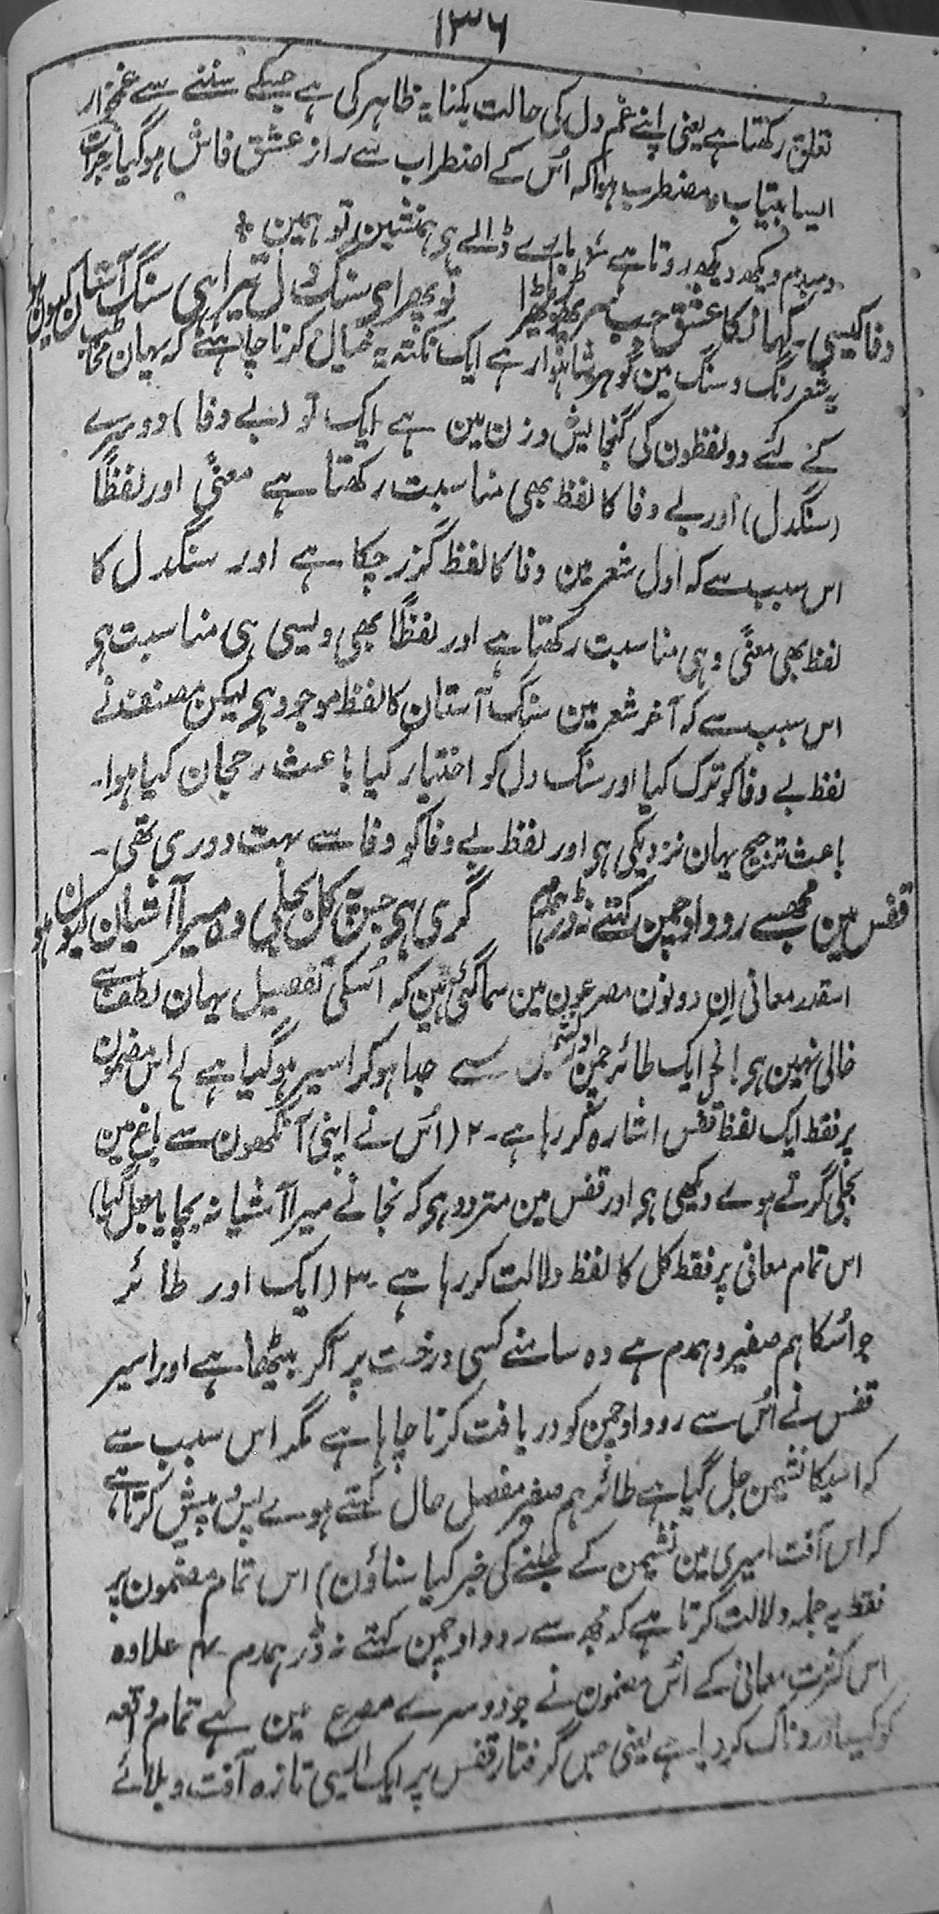 ۱۳۶
تعلق رکھتا ہے یعنی اپنے غم دل کی حالت بکنایہ ظاہر کی ہے جسکے سننے سے غمخوار
ایسا بیتاب و مضطرب ہوا کہ اُس کے اضطراب سے راز عشق فاش ہو گیا جرات
دمبدم دیکھ دیکھ روتا ہے ؏ مارے ڈالے ہی ہمنشین تو ہمین ٭
وفا کیسی کہان کا عشق جب سر پھوڑنا ٹھہرا تو پھر اے سنگ دل تیرا ہی سنگ آستان کیون ہو
یہ شعر رنگ و سنگ مین گوہر شاہوار ہے ایک نکتہ یہ خیال کرنا چاہئے کہ یہان مخاطب
کے لئے دو لفظون کی گنجایش وزن مین ہے ایک تو (بے وفا) دوسرے
(سنگدل) اور بے وفا کا لفظ بھی مناسبت رکھتا ہے معنًی اور لفظًا
اس سبب سے کہ اول شعر مین وفا کا لفظ گزر چکا ہے اور سنگدل کا
لفظ بھی معنًی وہی مناسبت رکھتا ہے اور لفظًا بھی ویسی ہی مناسبت ہو
اس سبب سے کہ آخر شعر مین سنگ آستان کا لفظ موجود ہو لیکن مصنف نے
لفظ بے وفا کو ترک کیا اور سنگ دل کو اختیار کیا باعث رحجان کیا ہوا۔
باعث ترجیح یہان نزدیکی ہو اور لفظ بے وفا کو وفا سے بہت دوری تھی۔
قفس مین مجھسے روداد چمن کہتے نہ ڈر ہمدم گری ہو جس پہ کل بجلی وہ میرا آشیان کیون ہو
اسقدر معانی ان دونون مصرعون مین سما گئے ہین کہ اُسکی تفصیل یہان لطف سے
خالی نہین ہو ایک طائر چمن اور نشیمن سے جدا ہو کر اسیر ہو گیا ہے اس مضمون
پر فقط ایک لفظ قفس اشارہ کر رہا ہے۔ ۲ (اُس نے اپنی آنکھون سے باغ مین
بجلی گرتے ہوے دیکھی ہو اور قفس مین متردد ہو کہ نجانے میرا آشیانہ بچا یا جل گیا)
اس تمام معانی پر فقط کل کا لفظ دلالت کر رہا ہے ۔ ۳ (ایک اور طائر
جو اُسکا ہم صفیر و ہمدم ہے وہ سامنے کسی درخت پر آکر بیٹھا ہے اور اسیر
قفس نے اُس سے روداد چمن کو دریافت کرنا چاہا ہے مگر اس سبب سے
کہ اسیکا نشیمن جل گیا ہے طائر ہم صفیر مفصل حال کہتے ہوے پس و پیش کرتا ہے
کہ اس آفت اسیری مین نشیمن کے جلنے کی خبر کیا سناؤن) اس تمام مضمون پر
فقط یہ جملہ دلالت کرتا ہے کہ مجھ سے روداد چمن کہتے نہ ڈر ہمدم ۔ ۴ علاوہ
اس کثرت معانی کے اُس مضمون نے جو دوسرے مصرع مین ہے تمام واقعہ
کو کیسا دردناک کردیا ہے یعنی جس گرفتار قفس پر ایک ایسی تازہ آفت و بلائے